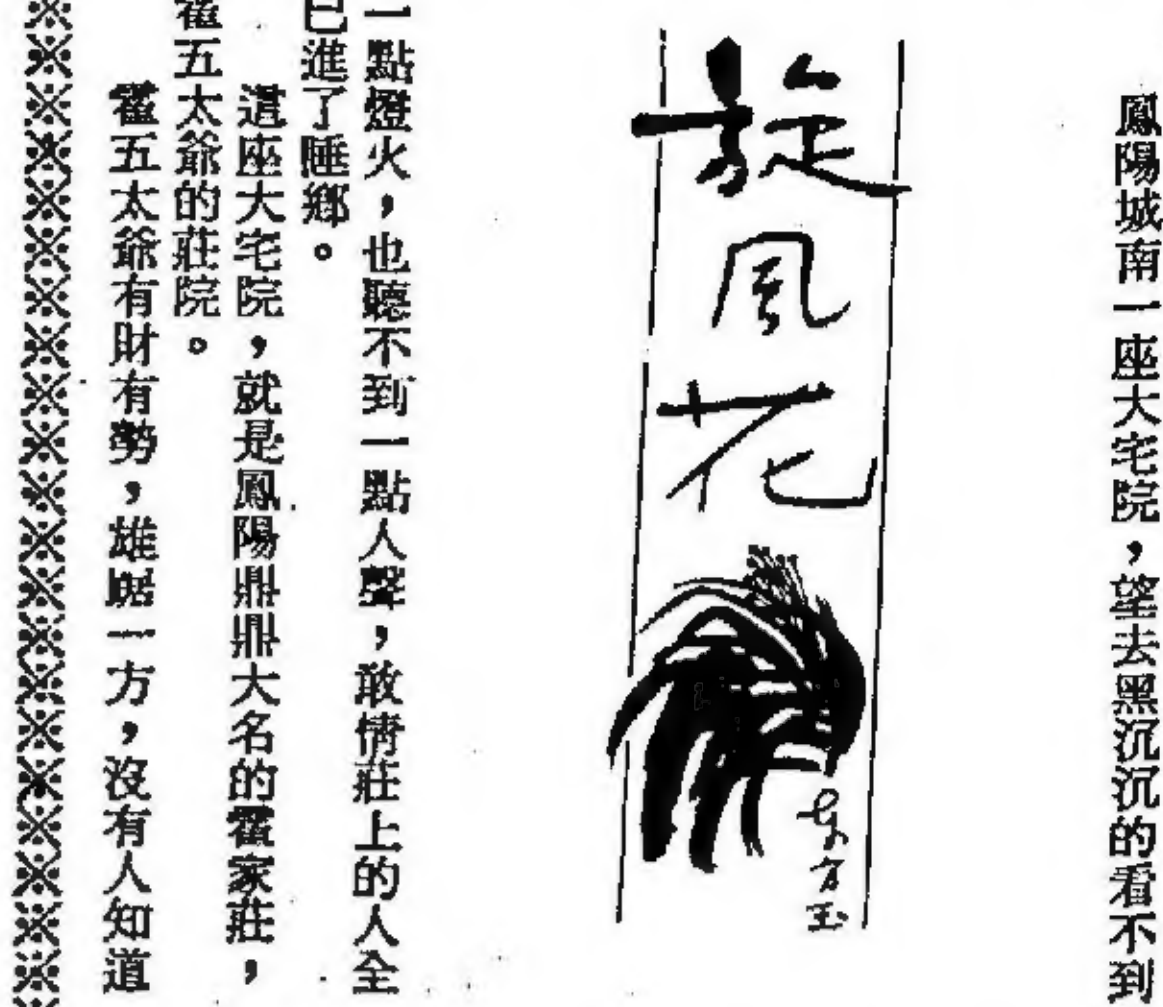 鳳陽城南一座大宅院，望去黑沉沉的看不到
旋風花
東方玉
一點燈火，也聽不到一點人聲，敢情莊上的人全
已進了睡鄉。
這座大宅院，就是鳳陽鼎鼎大名的霍家莊，
霍五太爺的莊院。
霍五太爺有財有勢，雄踞一方，沒有人知道